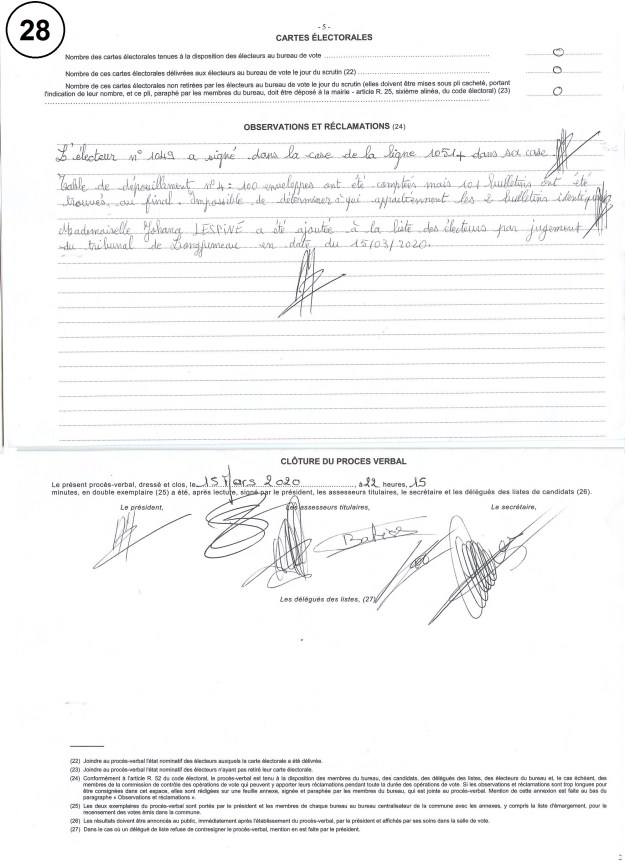 28
- 5 -
CARTES ÉLECTORALES
Nombre des cartes électorales tenues à la disposition des électeurs au bureau de vote 0
Nombre de ces cartes électorales délivrées aux électeurs au bureau de vote le jour du scrutin (22) 0
Nombre de ces cartes électorales non retirées par les électeurs au bureau de vote le jour du scrutin (elles doivent être mises sous pli cacheté, portant
l'indication de leur nombre, et ce pli, paraphé par les membres du bureau, doit être déposé à la mairie - article R. 25, sixième alinéa, du code électoral) (23) 0
OBSERVATIONS ET RÉCLAMATIONS (24)
L'électeur n° 1049 a signé dans la case de la ligne 1051 dans sa case.
Table de dépouillement n° 4 : 100 enveloppes ont été comptées mais 101 bulletins ont été
trouvés au final. Impossible de déterminer à qui appartiennent les 2 bulletins identiques
Mademoiselle Johang LESPINE a été ajoutée à la liste des électeurs par jugement
du tribunal de Longjumeau en date du 15/03/2020.
CLÔTURE DU PROCES VERBAL
Le présent procès-verbal, dressé et clos, le 15 Mars 2020, à 22 heures, 15
minutes, en double exemplaire (25) a été, après lecture, signé par le président, les assesseurs titulaires, le secrétaire et les délégués des listes de candidats (26).
Le président, Les assesseurs titulaires, Le secrétaire,
Les délégués des listes, (27)
(22) Joindre au procès-verbal l'état nominatif des électeurs auxquels la carte électorale a été délivrée.
(23) Joindre au procès-verbal l'état nominatif des électeurs n'ayant pas retiré leur carte électorale.
(24) Conformément à l'article R. 52 du code électoral, le procès-verbal est tenu à la disposition des membres du bureau, des candidats, des délégués des listes, des électeurs du bureau et, le cas échéant, des
membres de la commission de contrôle des opérations de vote qui peuvent y apporter leurs réclamations pendant toute la durée des opérations de vote. Si les observations et réclamations sont trop longues pour
être consignées dans cet espace, elles sont rédigées sur une feuille annexe, signée et paraphée par les membres du bureau, qui est jointe au procès-verbal. Mention de cette annexion est faite au bas du
paragraphe « Observations et réclamations ».
(25) Les deux exemplaires du procès-verbal sont portés par le président et les membres de chaque bureau au bureau centralisateur de la commune avec les annexes, y compris la liste d'émargement, pour le
recensement des votes émis dans la commune.
(26) Les résultats doivent être annoncés au public, immédiatement après l'établissement du procès-verbal, par le président et affichés par ses soins dans la salle de vote.
(27) Dans le cas où un délégué de liste refuse de contresigner le procès-verbal, mention en est faite par le président.